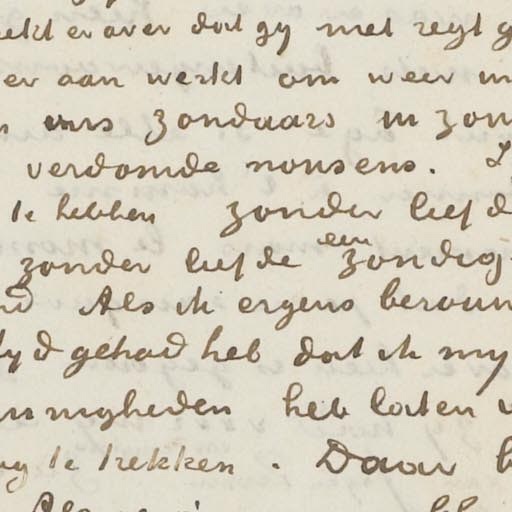 ekt er over dat gy met zegt g
er aan werkt om weer in
ons zondaars in zon
verdomde nonsens.
te hebben zonder liefd
zonder liefde een zondig
Als ik ergens berouw
tyd gehad heb dat ik my
innigheden heb laten
te trekken. Daar